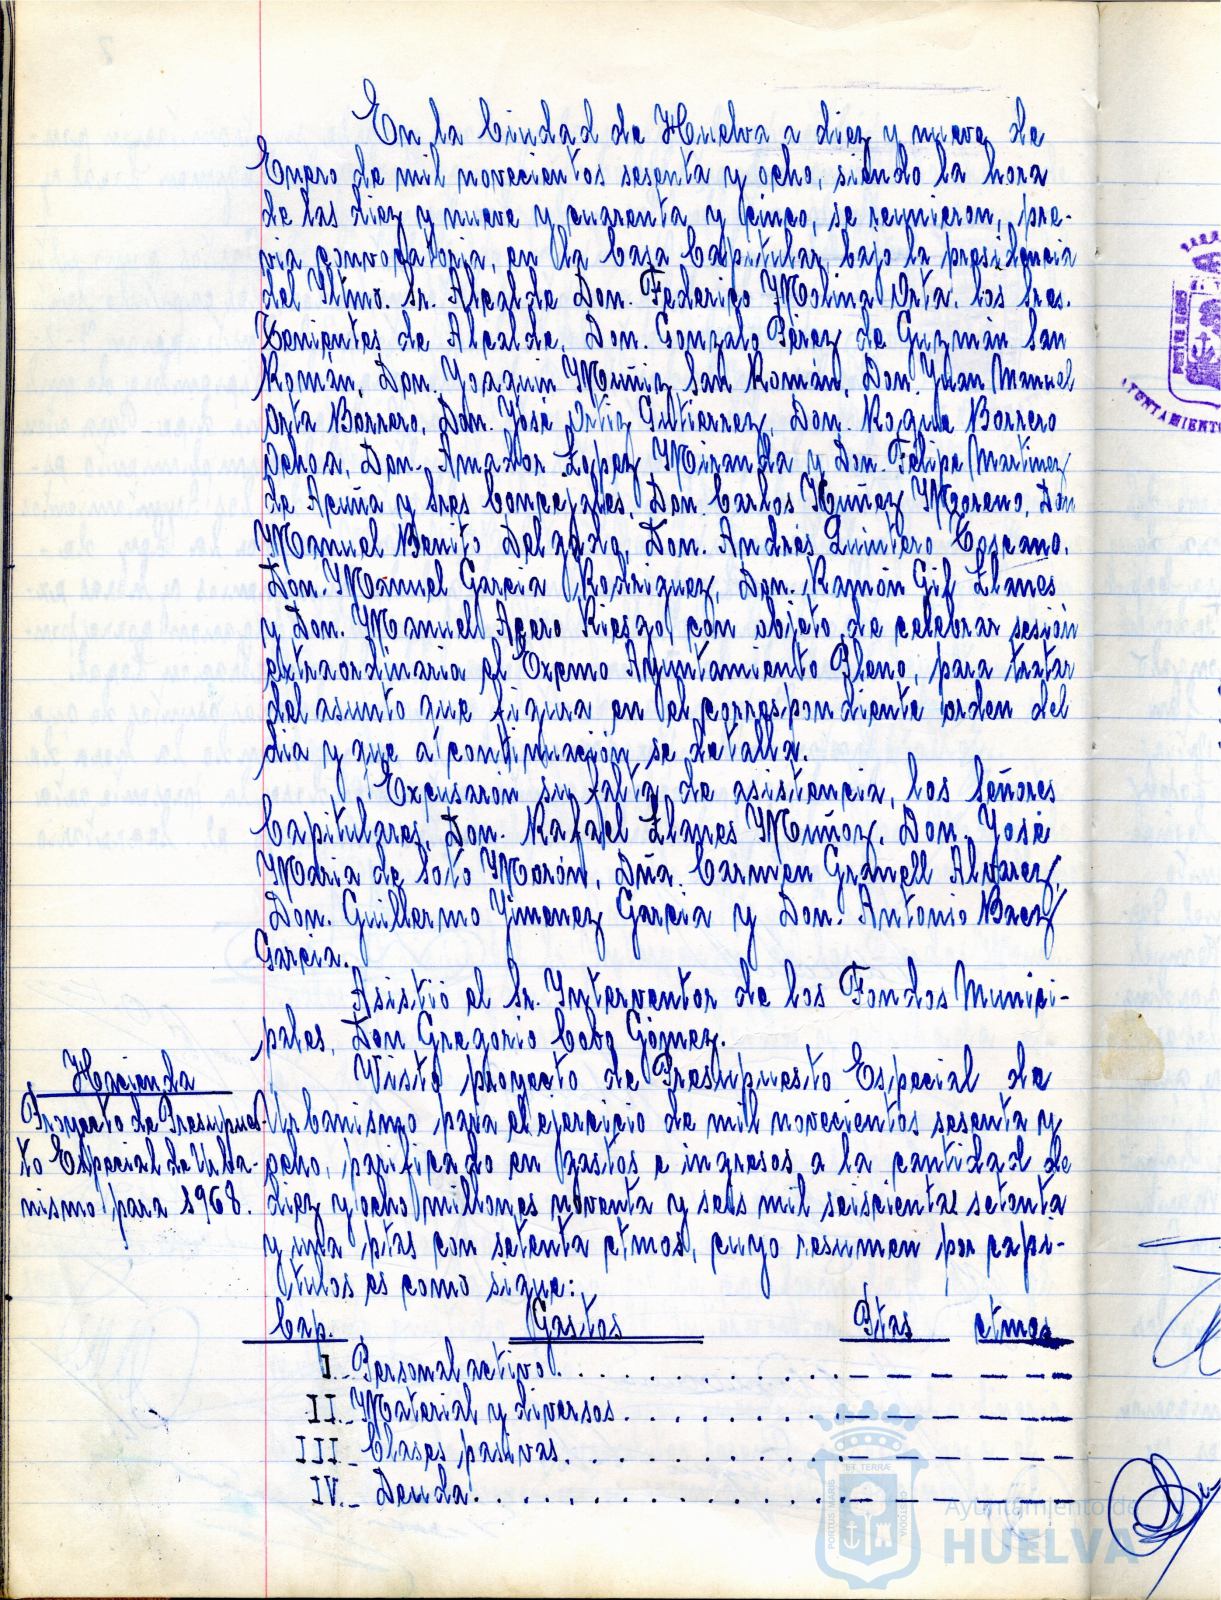 En la Ciudad de Huelva a diez y nueve de
Enero de mil novecientos sesenta y ocho, siendo la hora
de las diez y nueve y cuarenta y cinco, se reunieron, pre-
via convocatoria, en la Casa Capitular, bajo la presidencia
del Iltmo. Sr. Alcalde Don. Federico Molina Orta, los Sres.
Tenientes de Alcalde, Don. Gonzalo Pérez de Guzmán San
Román, Don. Joaquin Muñiz San Román, Don Juan Manuel
Orta Borrero, Don. José Ortiz Gutierrez, Don. Roque Borrero
Ochoa, Don. Amador Lopez Miranda y Don. Felipe Martinez
de Acuña y Sres Concejales, Don Carlos Nuñez Moreno, Don
Manuel Benito Delgado, Don. Andrés Quintero Toscano,
Don. Manuel Garcia Rodriguez, Don. Ramón Gif Llanes
y Don. Manuel Agero Riesgo, con objeto de celebrar sesión
extraordinaria el Excmo Ayuntamiento Pleno, para tratar
del asunto que figura en el correspondiente orden del
dia y que a continuación se detalla.
Excusarón su falta de asistencia, los Señores
Capitulares, Don. Rafael Llanes Muñoz, Don. José
Maria de Soto Morón, Dña. Carmen Granell Alvarez,
Don. Guillermo Jimenez Garcia y Don. Antonio Baez
Garcia.
Asistió el Sr. Interventor de los Fondos Munici-
pales, Don Gregorio Cobo Gómez.
Hacienda
Proyecto de Presupues-
to Especial de Urba-
nismo para 1968.
Visto proyecto de Presupuesto Especial de
Urbanismo para el ejercicio de mil novecientos sesenta y
ocho, parificado en gastos e ingresos a la cantidad de
diez y ocho millones noventa y seis mil seiscientas setenta
y una ptas con setenta ctmos, cuyo resumen por capi-
tulos es como sigue:
Cap. Gastos Ptas ctmos
I.- Personal activo. . . . . . . . . . . . — — — — — —
II.- Material y diversos. . . . . . . . . . — — — — — —
III.- Clases pasivas. . . . . . . . . . . . — — — — — —
IV.- Deuda. . . . . . . . . . . . . . — — — — — —
ET TERRÆ
PORTUS MARIS
CUSTODIA
Ayuntamiento de
HUELVA